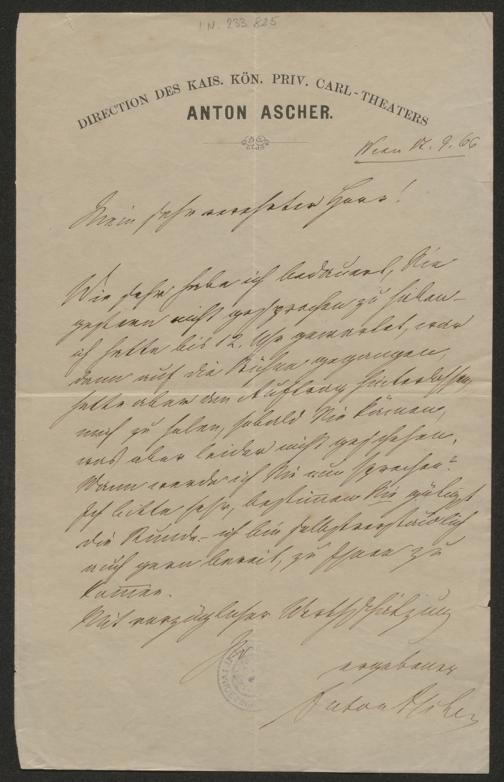 I.N. 233.825
DIRECTION DES KAIS. KÖN. PRIV. CARL-THEATERS
ANTON ASCHER.
Wien 12. 9. 66
Mein sehr verehrter Herr!
Wie sehr habe ich bedauert, Sie
gestern nicht gesprochen zu haben –
ich hatte bis 12. Uhr gewartet, war
dann auf die Bühne gegangen,
hatte aber den Auftrag hinterlassen,
mich zu holen, sobald Sie kämen,
was aber leider nicht geschehen.
Wann werde ich Sie nun sprechen?
Ich bitte sehr, bestimmen Sie gütigst
die Stunde – ich bin selbstverständlich
auch gern bereit, zu Ihnen zu
kommen.
Mit vorzüglicher Werthschätzung
Ihr
ergebener
Anton Ascher